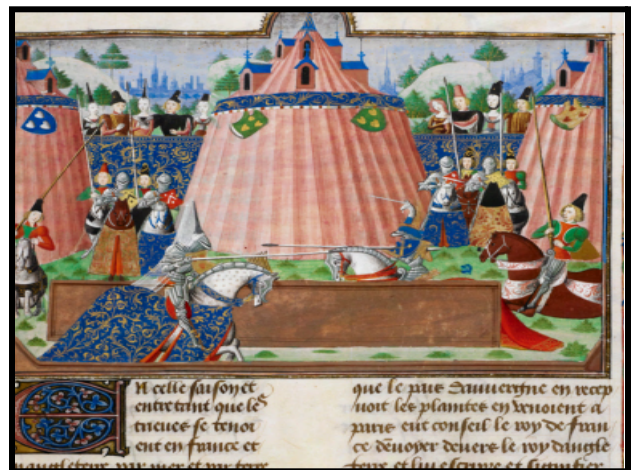 En celle saison et
entretant que les
trieues se tenoi
ent en france et
que le pais dauuergne en recep
uoit les plaintes en venoient a
paris eut conseil le roy de fran
ce denuoyer deuers le roy dangle